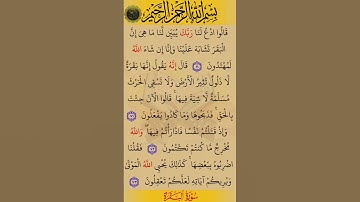 بسم الله الرحمن الرحيم
قَالُوا ادْعُ لَنَا رَبَّكَ يُبَيِّنْ لَنَا مَا هِيَ إِنَّ
الْبَقَرَ تَشَابَهَ عَلَيْنَا وَإِنَّا إِنْ شَاءَ اللَّهُ
لَمُهْتَدُونَ ٧٠ قَالَ إِنَّهُ يَقُولُ إِنَّهَا بَقَرَةٌ
لَا ذَلُولٌ تُثِيرُ الْأَرْضَ وَلَا تَسْقِي الْحَرْثَ
مُسَلَّمَةٌ لَا شِيَةَ فِيهَا ۚ قَالُوا الْآنَ جِئْتَ
بِالْحَقِّ ۚ فَذَبَحُوهَا وَمَا كَادُوا يَفْعَلُونَ ٧١
وَإِذْ قَتَلْتُمْ نَفْسًا فَادَّارَأْتُمْ فِيهَا ۖ وَاللَّهُ
مُخْرِجٌ مَا كُنْتُمْ تَكْتُمُونَ ٧٢ فَقُلْنَا
اضْرِبُوهُ بِبَعْضِهَا ۚ كَذَلِكَ يُحْيِي اللَّهُ الْمَوْتَىٰ
وَيُرِيكُمْ آيَاتِهِ لَعَلَّكُمْ تَعْقِلُونَ ٧٣
سُورَةُ الْبَقَرَةِ